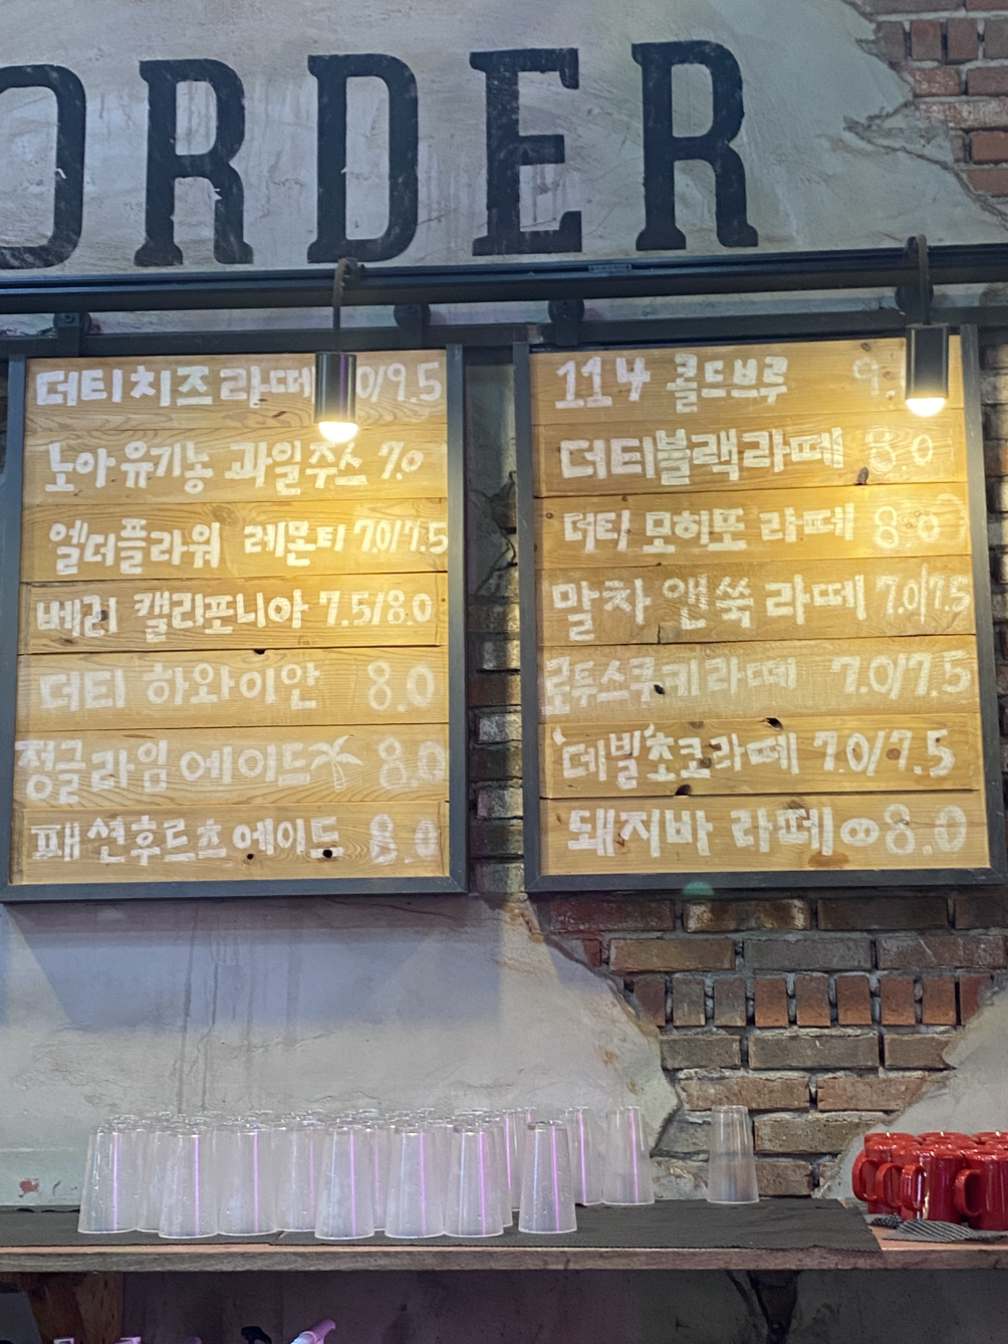 ORDER
더티치즈라떼 0/9.5
노아유기농 과일쥬스 7.0
엘더플라워 레몬티 7.0/7.5
베리 캘리포니아 7.5/8.0
더티 하와이안 8.0
정글라임에이드 8.0
패션후르츠에이드 8.0
114 콜드브루 9.
더티블랙라떼 8.0
더티 모히또 라떼 8.0
말차 앤쑥 라떼 7.0/7.5
로투스쿠키라떼 7.0/7.5
'데빌'초코라떼 7.0/7.5
돼지바 라떼 8.0